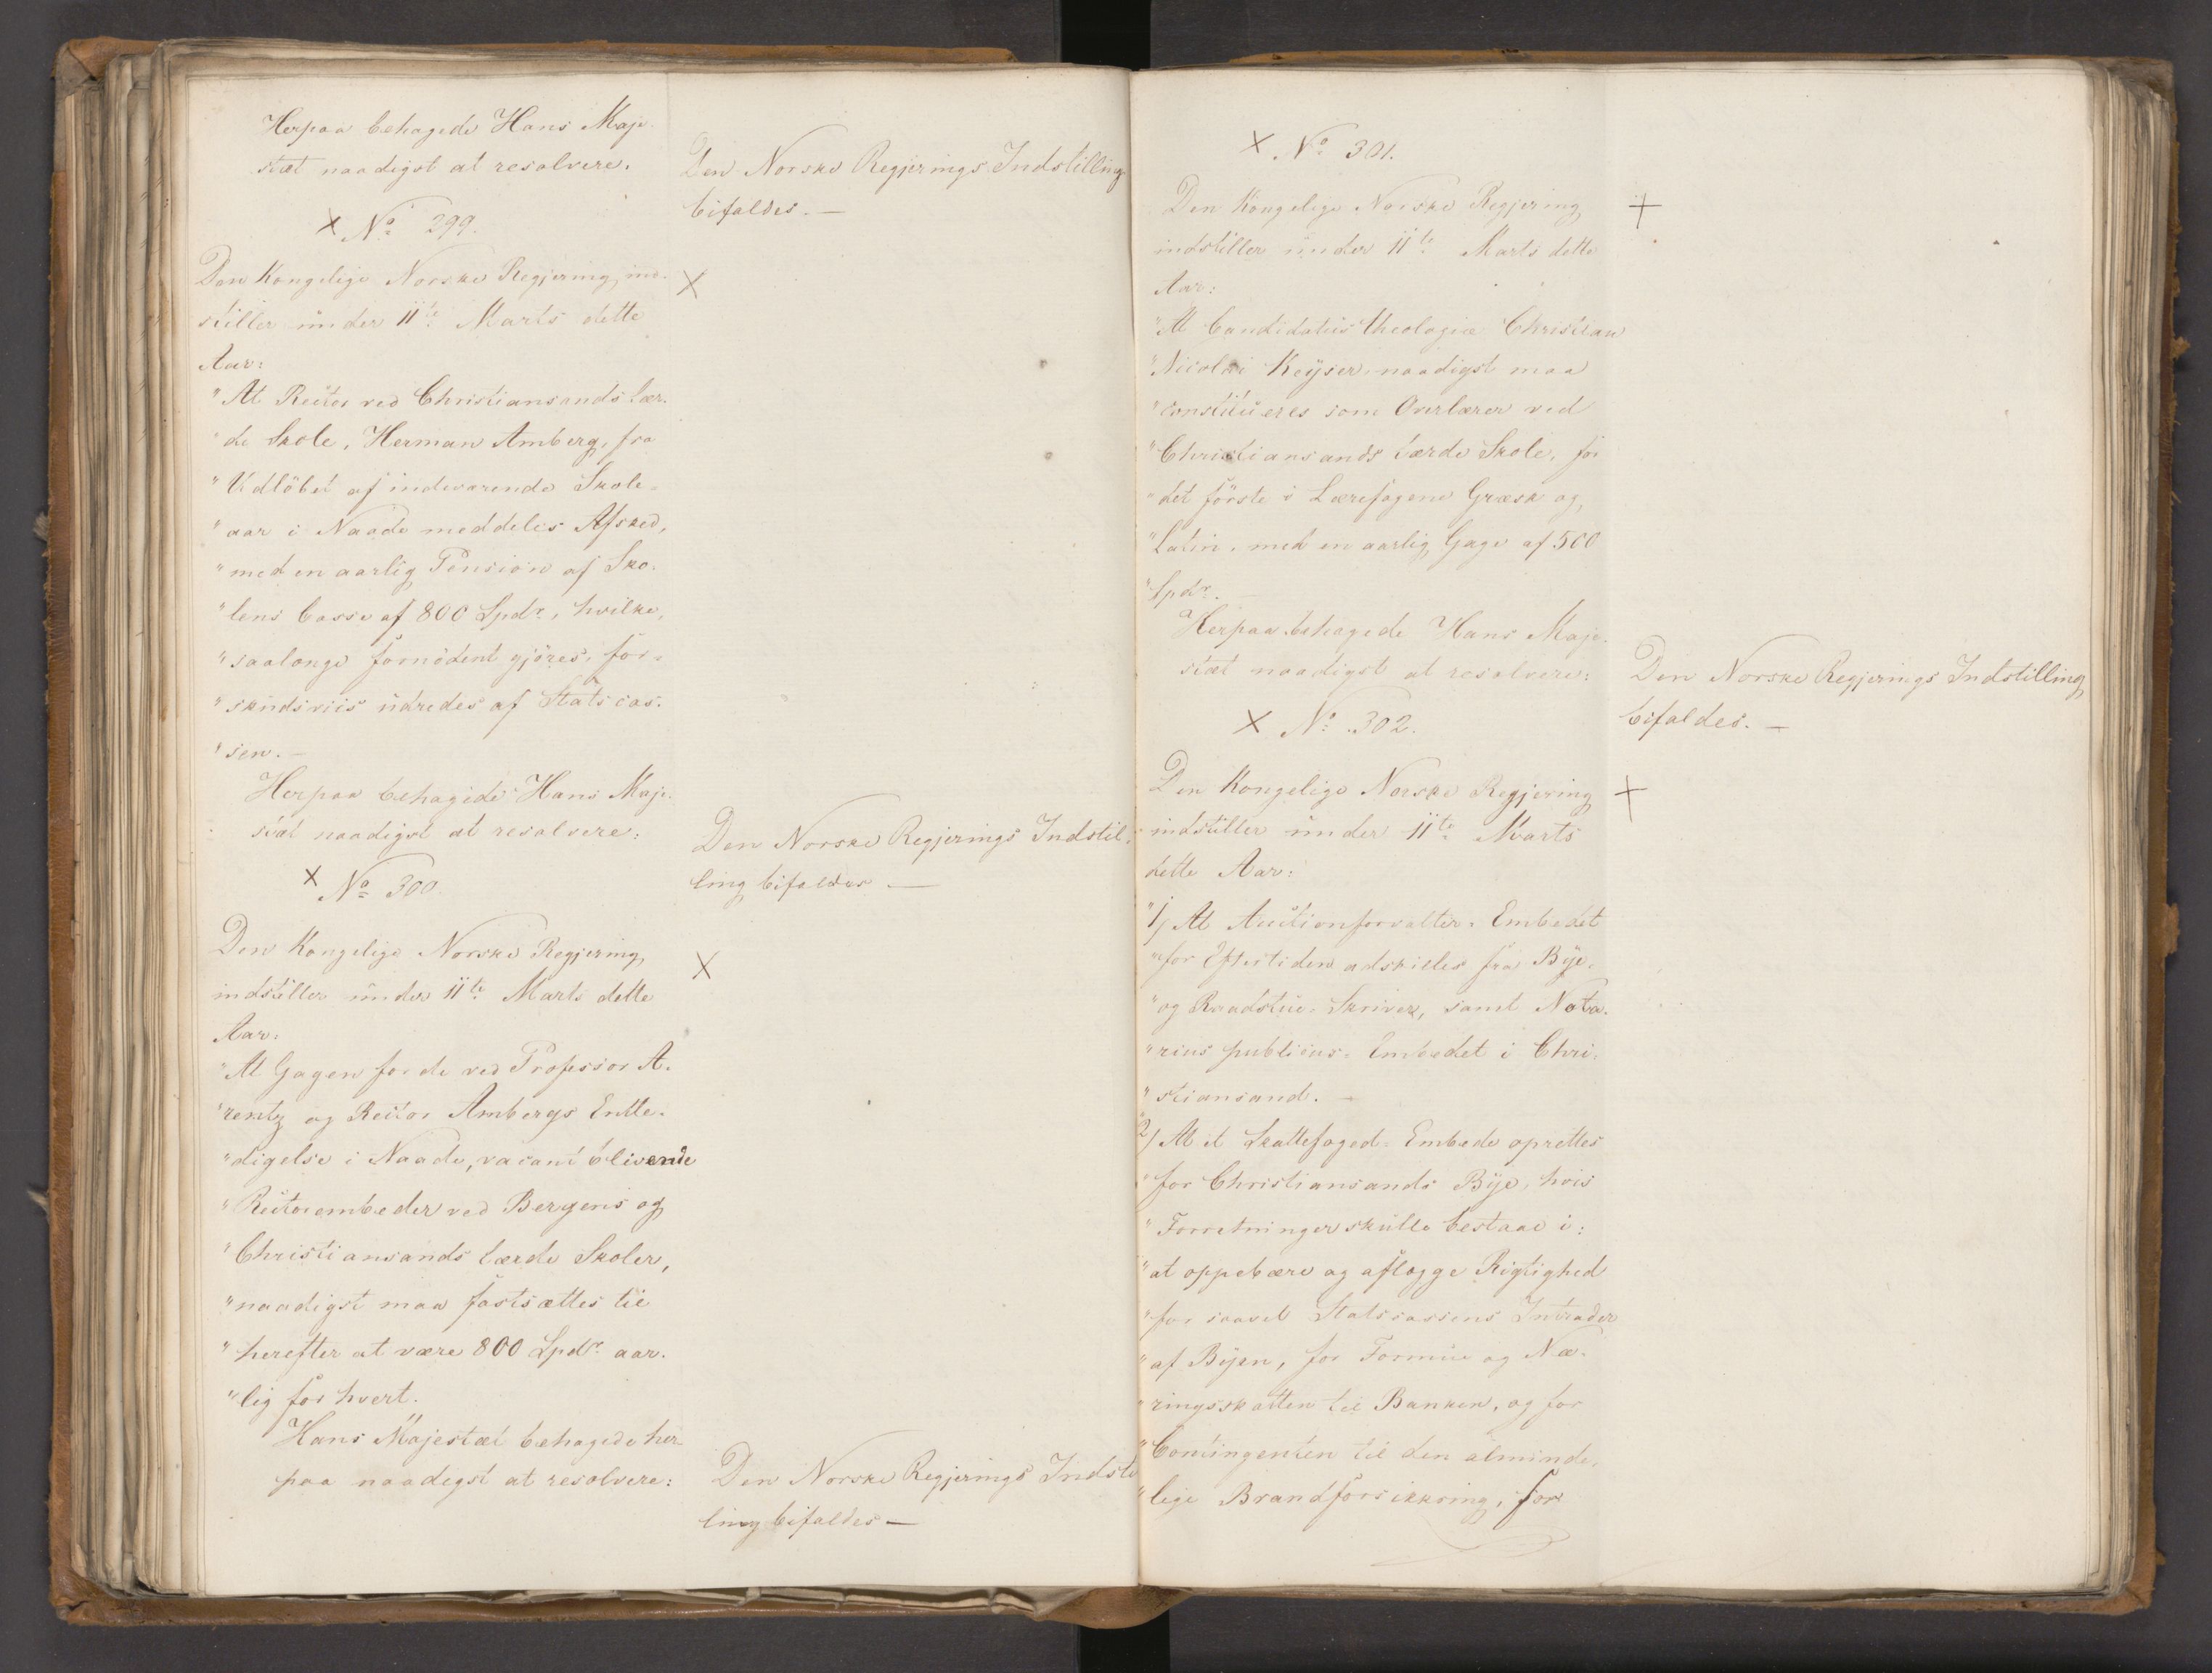 Herpaa behagede Hans Maje-
stæt naadigst at resolvere.
Den Norske Regjerings Indstilling
bifaldes. —
× No 299.
Den Kongelige Norske Regjering ind-
stiller under 11te Marts dette
Aar:
×
"At Rector ved Christiansands lær-
"de Skole, Herman Amberg, fra
"Udløbet af indeværende Skole-
"aar i Naade meddeles Afsked,
"med en aarlig Pension af Sko-
"lens Casse af 800 Spdr, hvilke,
"saalænge fornødent gjöres, for-
"skudsviis udredes af Statscas-
"sen. —
Herpaa behagede Hans Maje-
stæt naadigst at resolvere:
Den Norske Regjerings Indstil-
ling bifaldes —
× No 300.
Den Kongelige Norske Regjering
indstiller under 11te Marts dette
Aar:
×
"At Gagen for de ved Professor A-
"rentz og Rector Ambergs Entle-
"digelse i Naade, vacant blivende
"Rectorembeder ved Bergens og
"Christiansands lærde Skoler,
"naadigst maa fastsættes til
"herefter at være 800 Spdr aar-
"lig for hvert.
Hans Majestæt behagede her-
paa naadigst at resolvere:
Den Norske Regjerings Indstil
ling bifaldes —
× No 301.
Den Kongelige Norske Regjering
indstiller under 11te Marts dette
Aar:
×
"At Candidatus theologiæ Christian
"Nicolai Keyser naadigst maa
"constitueres som Overlærer ved
"Christiansands lærde Skole, for
"det förste i Lærefagene Græsk og
"Latin, med en aarlig Gage af 500
"Spdr. —
Herpaa behagede Hans Maje-
stæt naadigst at resolvere:
Den Norske Regjerings Indstilling
bifaldes. —
× No 302.
Den Kongelige Norske Regjering
indstiller under 11te Marts
dette Aar:
×
"1/ At Auctionsforvalter-Embedet
"for Eftertiden adskilles fra Bye-
"og Raadstue-Skriver, samt Nota-
"rius publicus-Embedet i Chri-
"stiansand. —
2/ At et Skattefoged-Embede oprettes
"for Christiansands Bye, hvis
"Forretninger skulle bestaae i:
"at oppebære og aflægge Rigtighed
"for saavel Statscassens Intrader
"af Byen, for Formue og Næ-
"ringsskatten til Banken, og for
"Contingenten til den alminde-
"lige Brandforsikkring, for